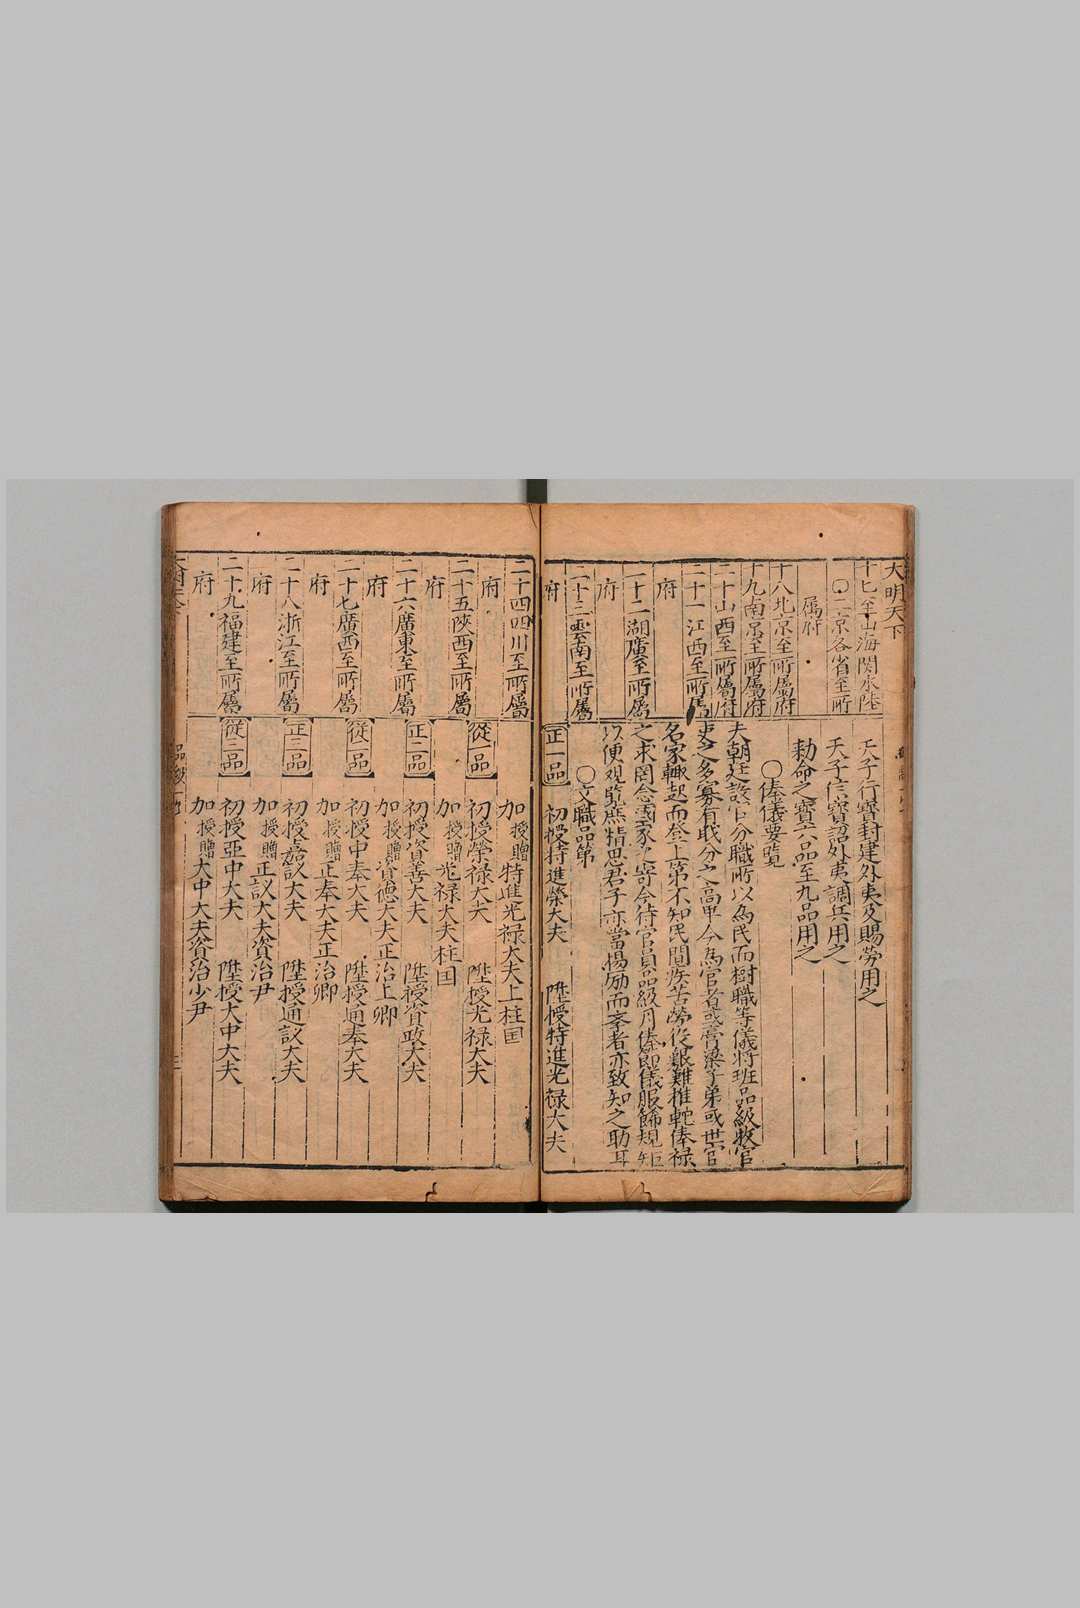 大明天下
十七至山海関水陸
〇二京各省至所
属府
十八北京至所屬府
十九南京至所屬府
二十山西至所屬府
二十一江西至所屬
府
二十二湖廣至所屬
府
二十三雲南至所屬
府
天子行寶封建外夷及賜勞用之
天子信寶詔外夷調兵用之
勅命之寶六品至九品用之
〇俸儀要覽
夫朝廷設官分職所以為民而樹職等儀將班品級收官
吏之多寡有戢分之高卑今為官者或膏粱子弟或世宦
名家輙起而登上第不知民間疾苦勞役艱難推軶俸禄
之求罔念國家之寄今待官員品級月俸卽儀服飾規矩
以便观覧庶精思君子亦當揚励而斈者亦致知之助耳
〇文職品第
正一品 初授特進榮大夫 陞授特進光禄大夫
二十四四川至所屬
府
二十五陝西至所屬
府
二十六廣東至所屬
府
二十七廣西至所屬
府
二十八浙江至所屬
府
二十九福建至所屬
府
加授贈特進光禄大夫上柱国
從一品 初授榮禄大夫 陞授光禄大夫
加授贈光禄大夫柱国
正二品 初授資善大夫 陞授資政大夫
加授贈資德大夫正治上卿
從二品 初授中奉大夫 陞授通奉大夫
加授贈正奉大夫正治卿
正三品 初授嘉議大夫 陞授通議大夫
加授贈正議大夫資治尹
從三品 初授亞中大夫 陞授大中大夫
加授贈大中大夫資治少尹
品級